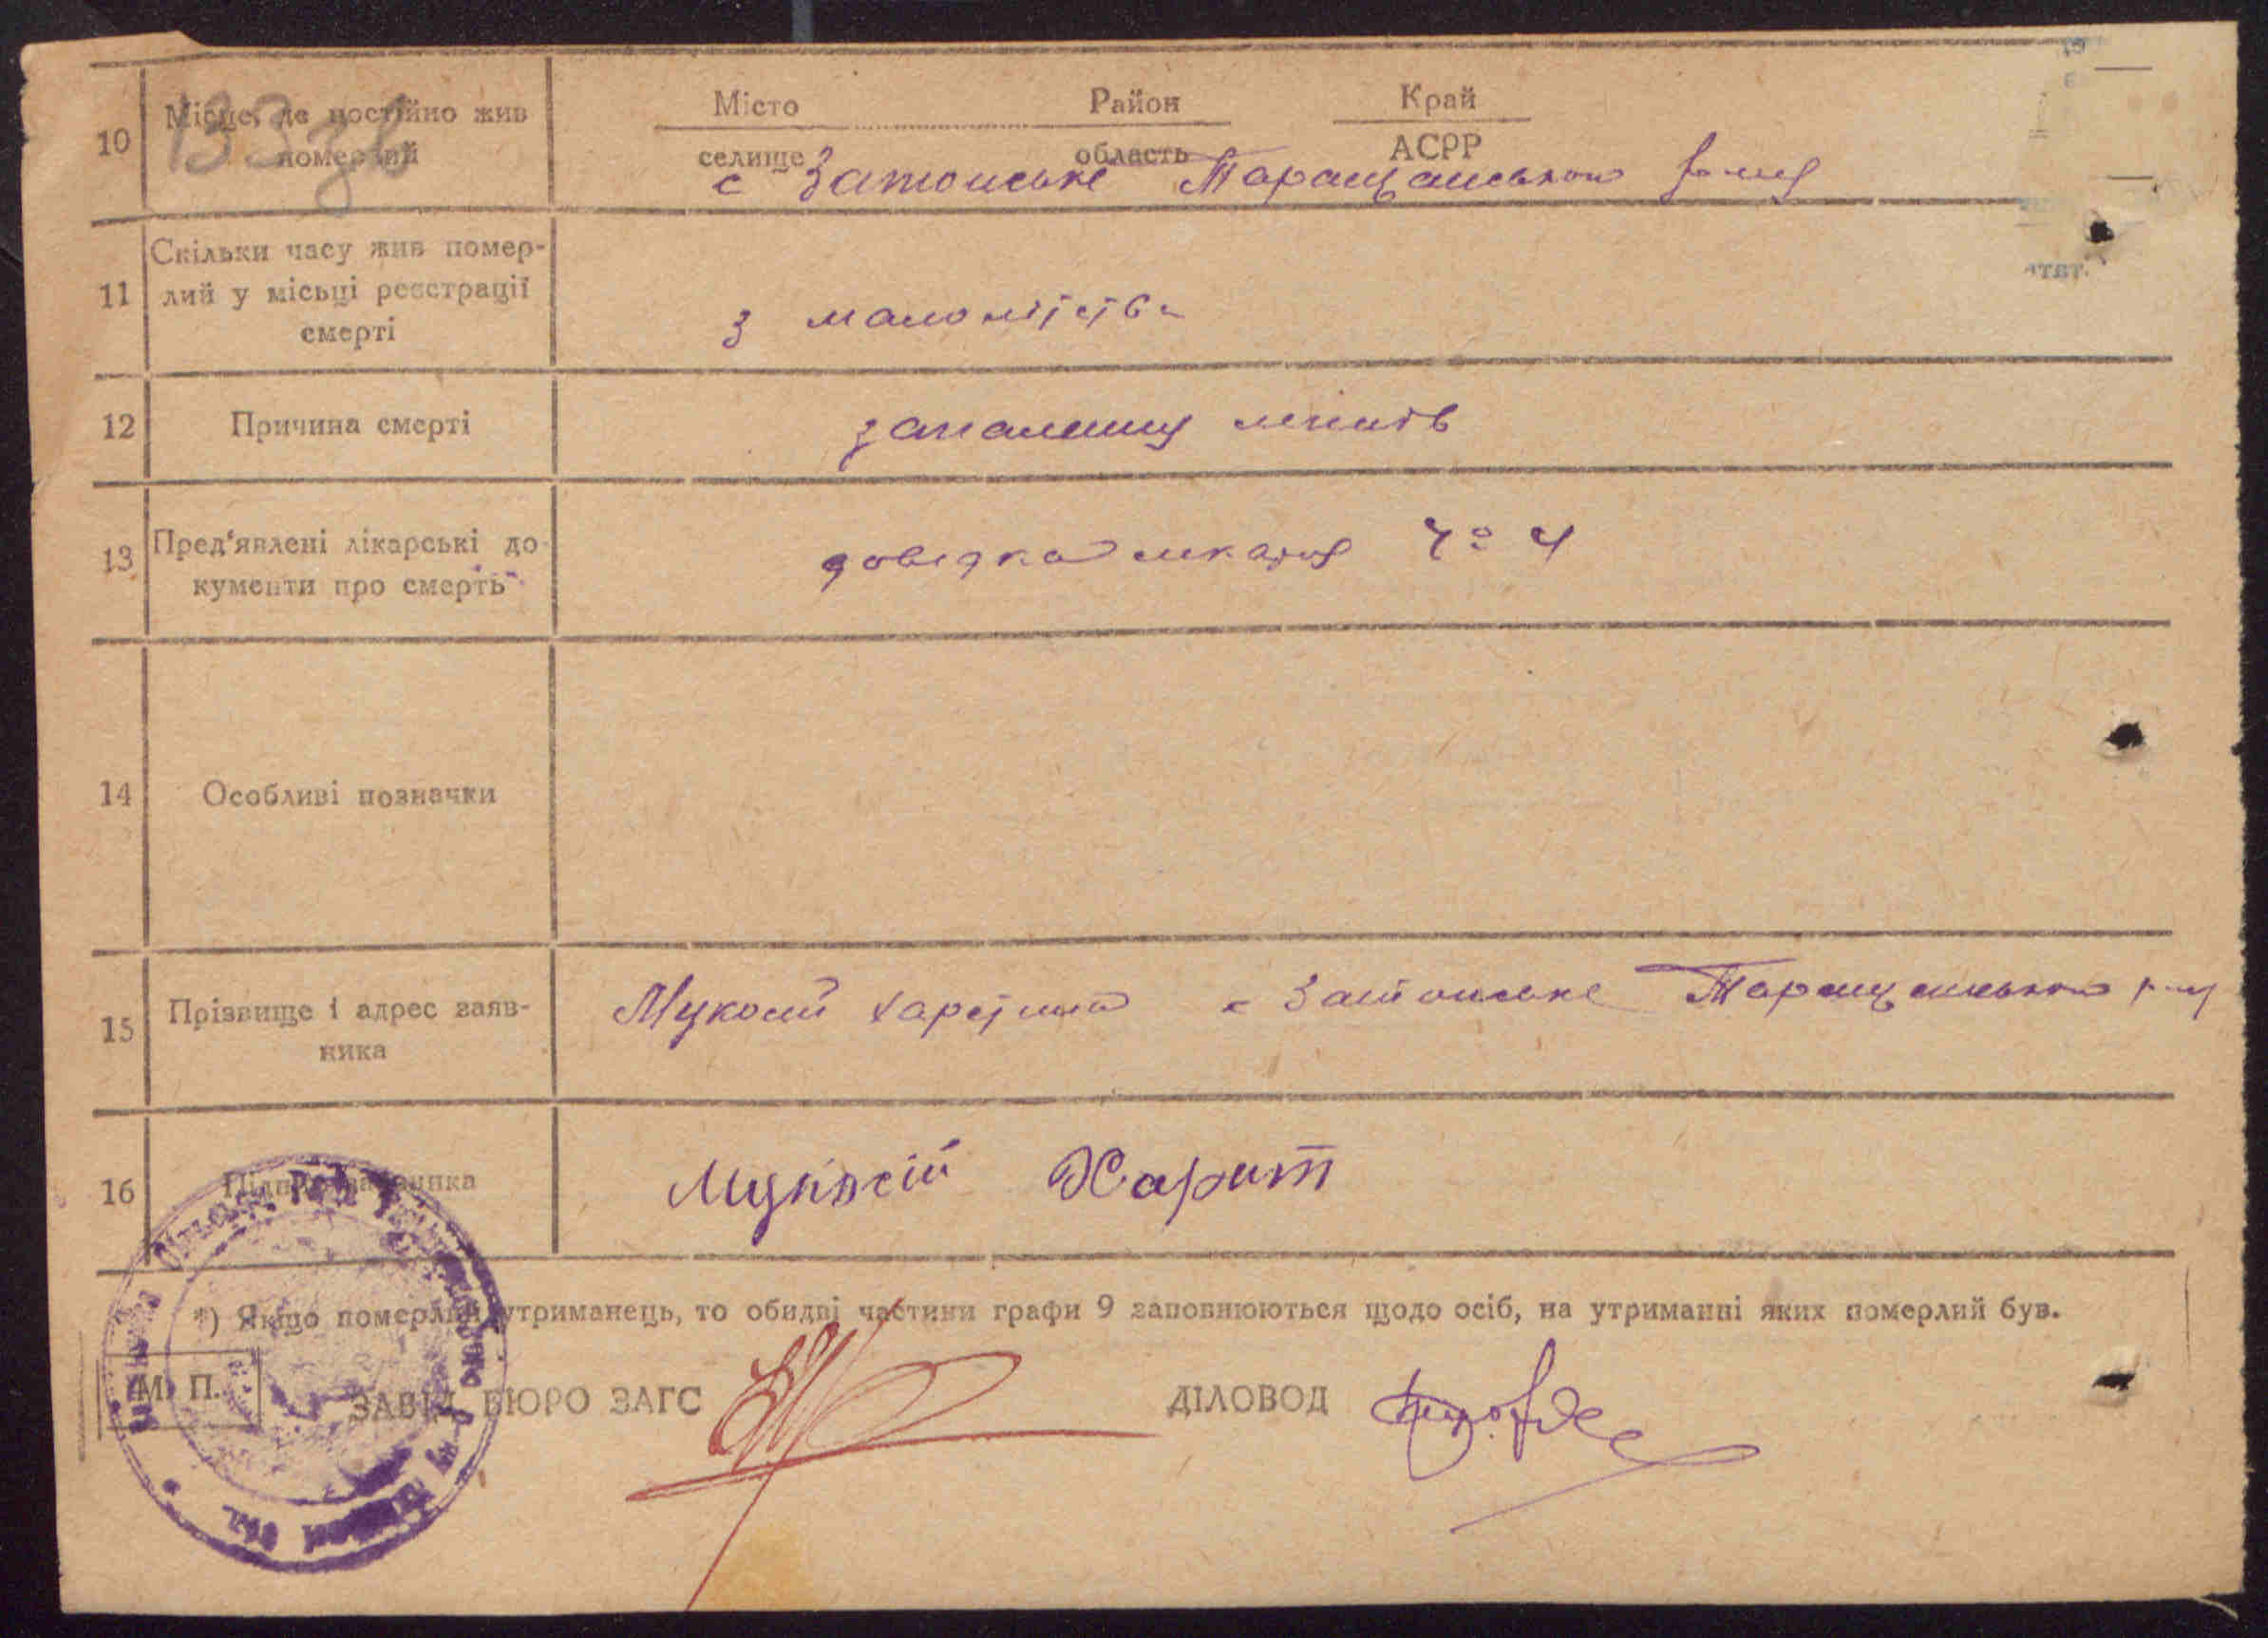 10 Місце, де постійно жив Місто Район Край
померлий селище область АСРР
с Затонське Таращанського р-ну
Скільки часу жив помер-
11 лий у місьці реєстрації
смерті
з малолітства
12 Причина смерті запалення легенів
13 Пред'явлені лікарські до-
кументи про смерть
довідка лікаря № 4
14 Особливі позначки
15 Прізвище і адрес заяв-
ника
Мукосій Харетина с Затонське Таращанського р-ну
16 Підпис заявника Мукосій Харит
*) Якщо померлий утриманець, то обидві частини графи 9 заповнюються щодо осіб, на утриманні яких померлий був.
М. П.
ЗАВІД. БЮРО ЗАГС ДІЛОВОД